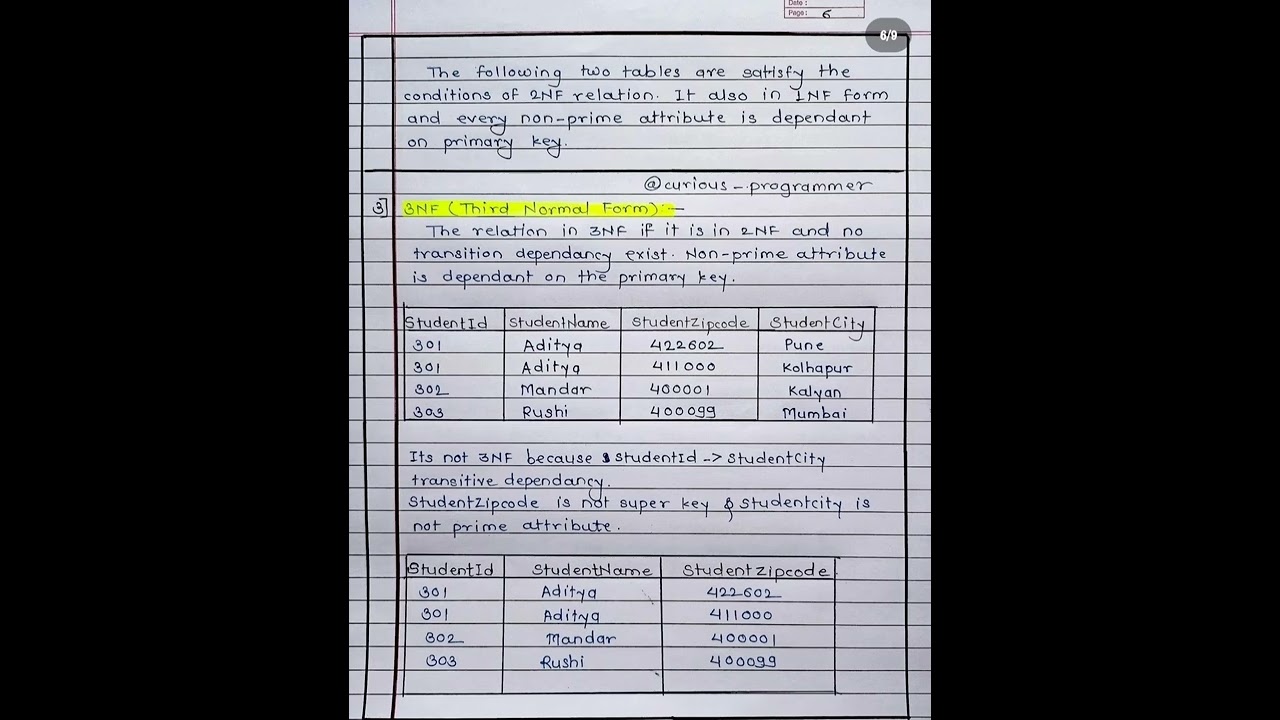 Date:
Page: 6
6/9
The following two tables are satisfy the
conditions of 2NF relation. It also in 1NF form
and every non-prime attribute is dependant
on primary key.
@curious_programmer
3] 3NF (Third Normal Form):-
The relation in 3NF if it is in 2NF and no
transition dependancy exist. Non-prime attribute
is dependant on the primary key.
StudentId StudentName StudentZipcode StudentCity
301 Aditya 422602 Pune
301 Aditya 411000 Kolhapur
302 Mandar 400001 Kalyan
303 Rushi 400099 Mumbai
Its not 3NF because StudentId -> StudentCity
transitive dependancy.
StudentZipcode is not super key & Studentcity is
not prime attribute.
StudentId StudentName Studentzipcode
301 Aditya 422602
301 Aditya 411000
302 Mandar 400001
303 Rushi 400099